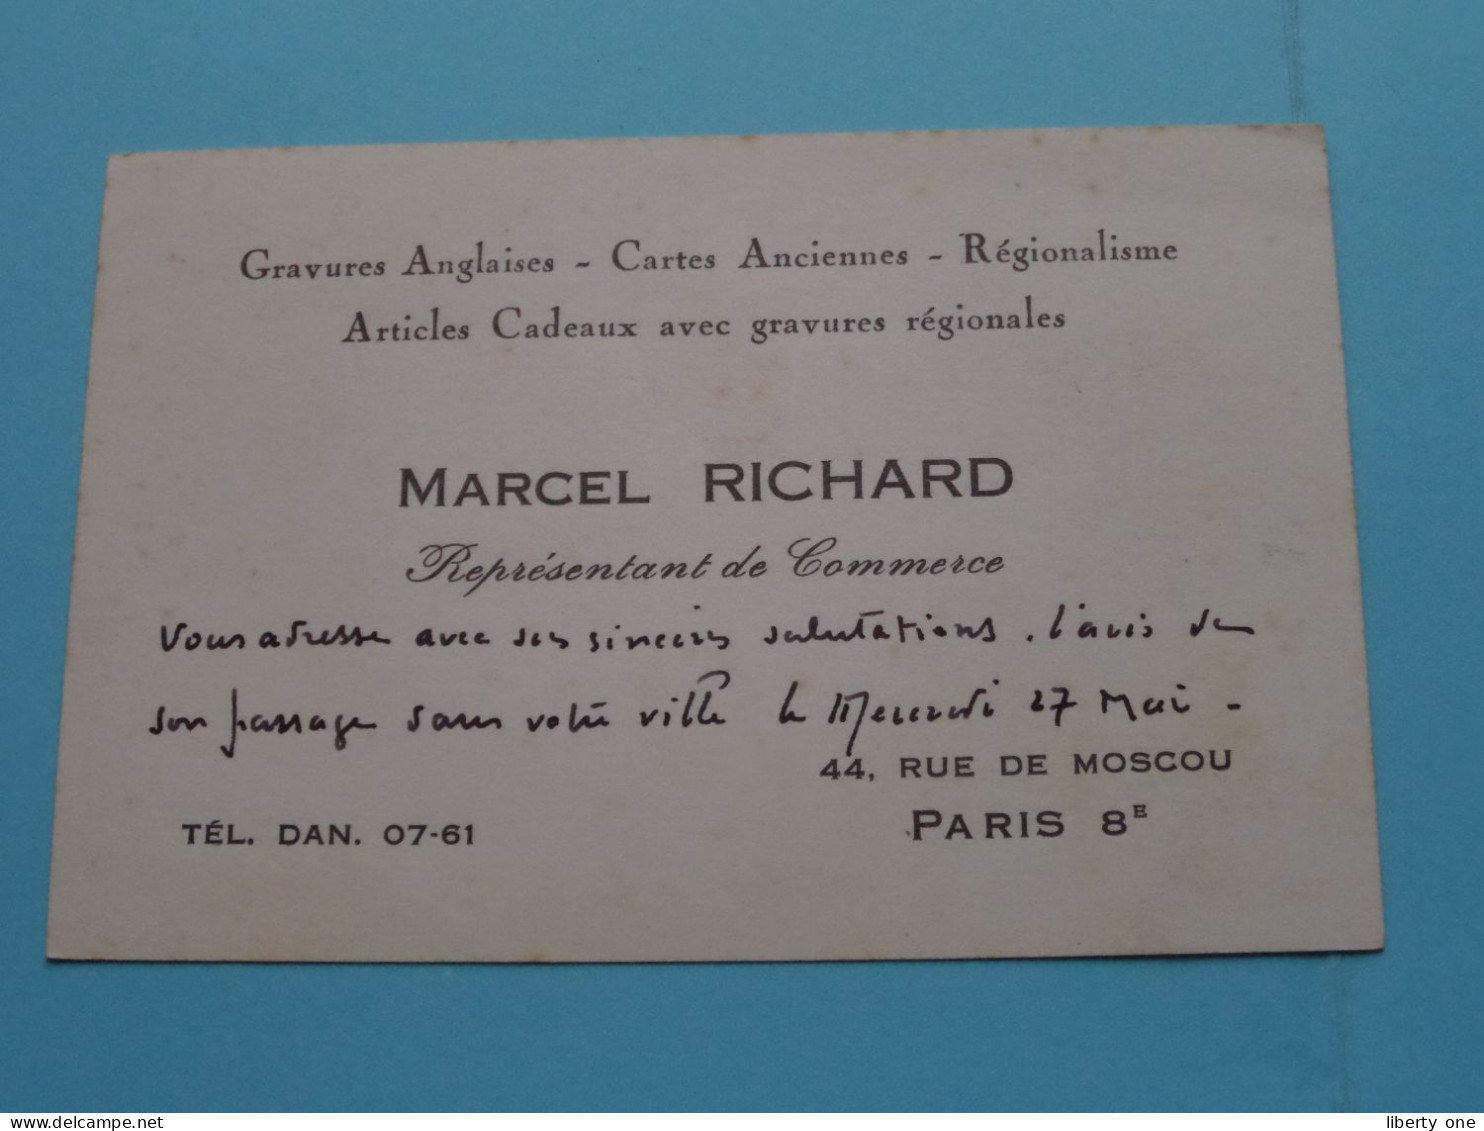 Gravures Anglaises - Cartes Anciennes - Régionalisme
Articles Cadeaux avec gravures régionales
MARCEL RICHARD
Représentant de Commerce
Vous adresse avec ses sincères salutations. l'avis de
son passage dans votre ville le Mercredi 27 Mai -
44, RUE DE MOSCOU
TÉL. DAN. 07-61
PARIS 8E
delcampe.net
liberty one